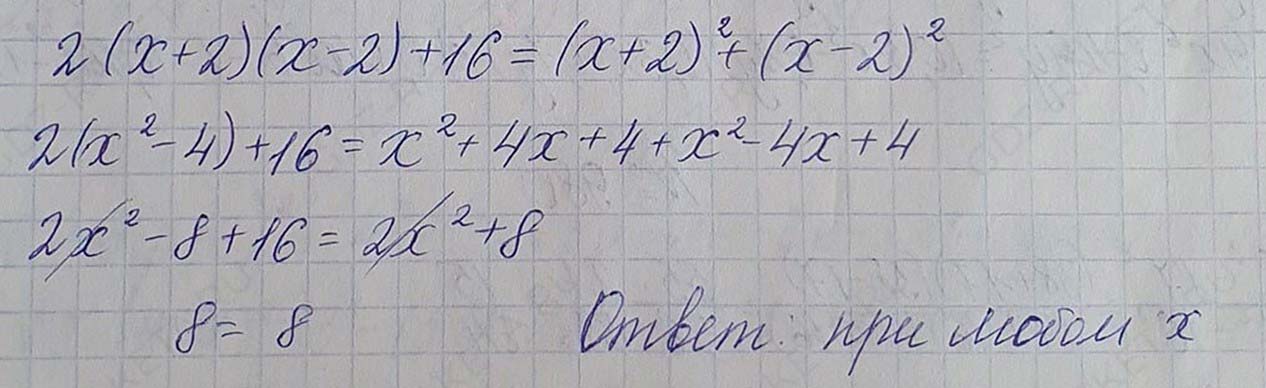 2(x+2)(x-2)+16=(x+2)²+(x-2)²
2(x²-4)+16=x²+4x+4+x²-4x+4
2x²-8+16=2x²+8
8=8
Ответ: при любом x